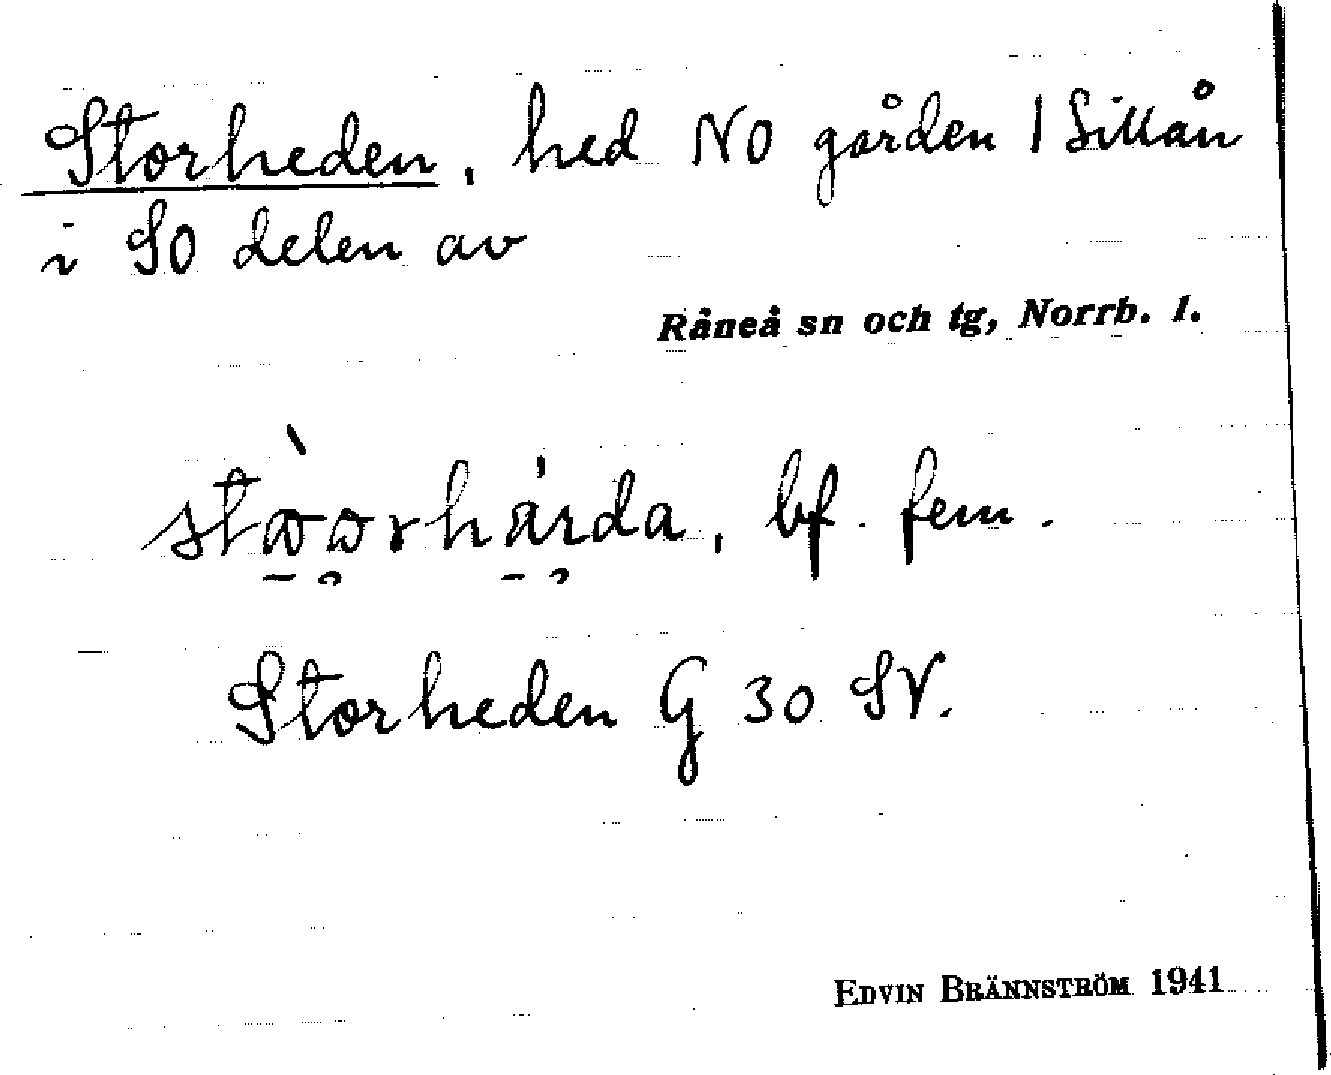 Storheden, hed NO gården 1 Sillån
i SO delen av
Råneå sn och tg, Norrb. l.
bf. fem.
Storheden G 30 SV.
EDVIN BRÄNNSTRÖM 1941